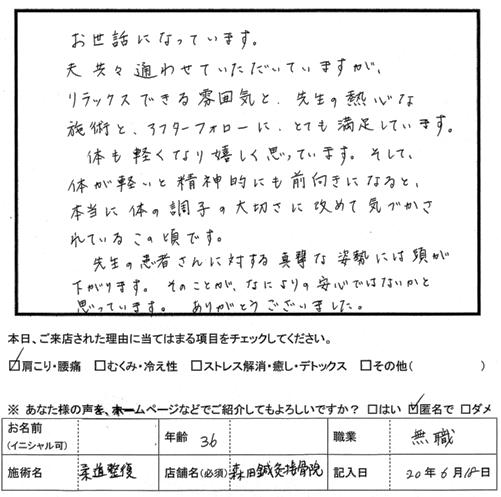 お世話になっています。
夫共々通わせていただいていますが、
リラックスできる雰囲気と、先生の熱心な
施術と、アフターフォローに、とても満足しています。
体も軽くなり嬉しく思っています。そして、
体が軽いと精神的にも前向きになると、
本当に体の調子の大切さに改めて気づかさ
れているこの頃です。
先生の患者さんに対する真摯な姿勢には頭が
下がります。そのことが、なによりの安心ではないかと
思っています。ありがとうございました。
本日、ご来店された理由に当てはまる項目をチェックしてください。
☑肩こり・腰痛 □むくみ・冷え性 □ストレス解消・癒し・デトックス □その他( )
※ あなた様の声を、ホームページなどでご紹介してもよろしいですか？ □はい ☑匿名で □ダメ
お名前
(イニシャル可) 年齢 36 職業 無職
施術名 柔道整復 店舗名(必須) 森田鍼灸接骨院 記入日 20年6月18日